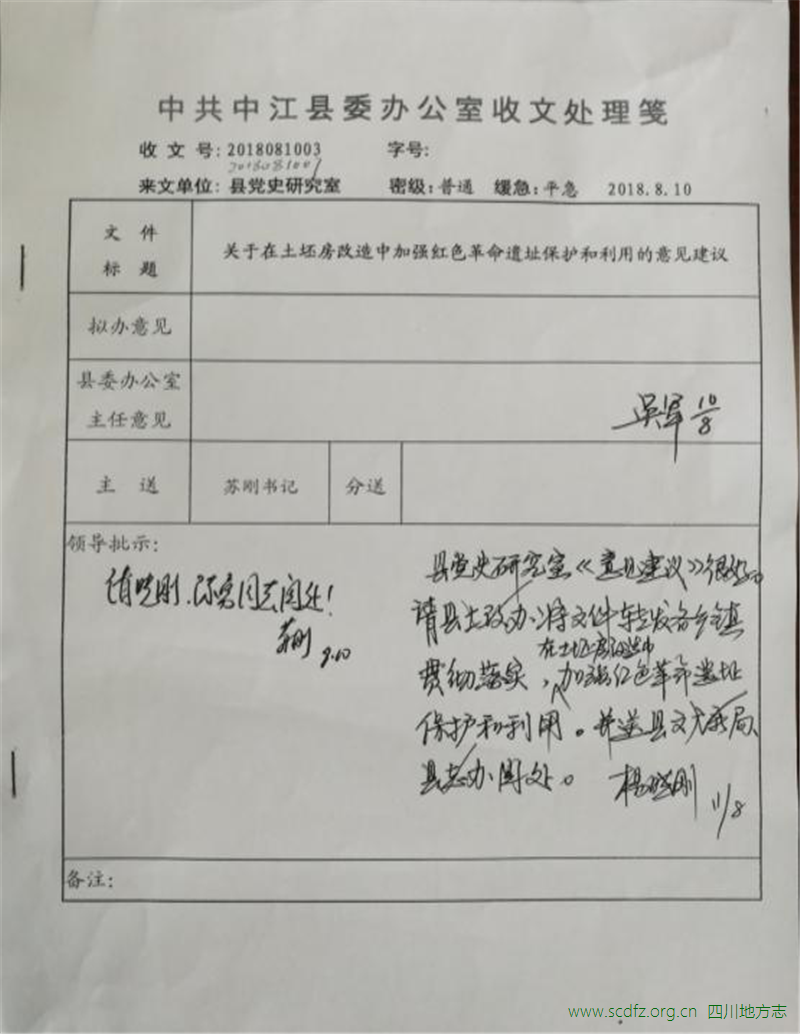 中共中江县委办公室收文处理笺
收 文 号: 2018081003 字号:
2018081001
来文单位: 县党史研究室 密级: 普通 缓急: 平急 2018.8.10
文 件
标 题
关于在土坯房改造中加强红色革命遗址保护和利用的意见建议
拟办意见
县委办公室
主任意见
吴军 10/8
主 送 苏刚书记 分送
领导批示:
请晓刚、 同志阅处!
苏刚 9.10
县党史研究室《意见建议》很好。
请县土改办将文件转发各乡镇
在土坯房改造中
贯彻落实,加强红色革命遗址
保护和利用。并送县文广局、
县志办阅处。 杨晓刚 11/8
备注:
www.scdfz.org.cn 四川地方志